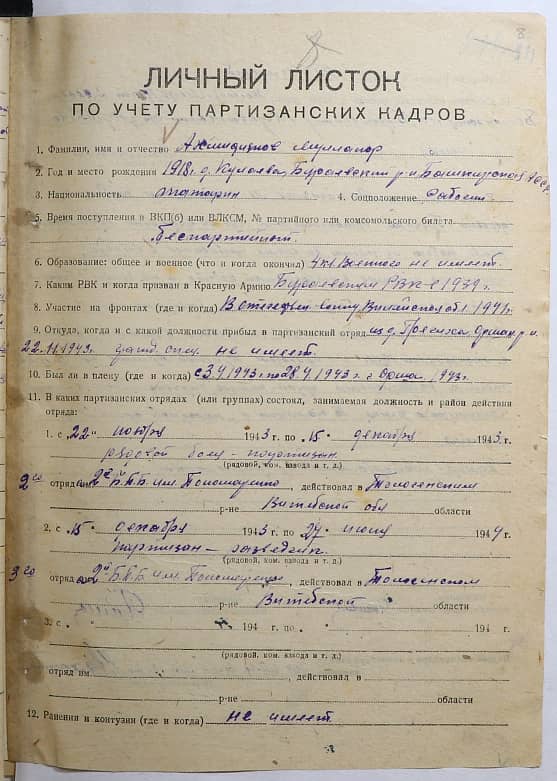 8
8
ЛИЧНЫЙ ЛИСТОК
ПО УЧЕТУ ПАРТИЗАНСКИХ КАДРОВ
1. Фамилия, имя и отчество
2. Год и место рождения 1918 г. д. Бураевский р-н Башкирской АССР
3. Национальность татарин 4. Соцположение рабочий
5. Время поступления в ВКП(б) или ВЛКСМ, № партийного или комсомольского билета
беспартейный.
6. Образование: общее и военное (что и когда окончил) 4 кл Военного не имеет.
7. Каким РВК и когда призван в Красную Армию Бураевским РВК в 1939 г.
8. Участие на фронтах (где и когда) 1941 г.
9. Откуда, когда и с какой должности прибыл в партизанский отряд из д.
22.11.1943г. не имеет.
10. Был ли в плену (где и когда) с 3.4.1943 г. по 28.4.1943 г. г Орша 1943г.
11. В каких партизанских отрядах (или группах) состоял, занимаемая должность и район действия
отряда:
1. с 22 ноября 1943 г. по 15 декабря 1943 г.
рядовой боец - партизан
(рядовой, ком. взвода и т. д.)
2го отряд им 2й БПБ им. Пономаренко, действовал в
р-не Витебской обл области
2. с 15 декабря 1943 г. по 27 июня 1944 г.
партизан - разведчик
(рядовой, ком. взвода и т. д.)
3го отряд 2й БПБ им. Пономаренко, действовал в
р-не Витебской области
3. с 194 г. по 194 г.
(рядовой, ком. взвода и т. д.)
отряд им. действовал в
р-не области
12. Ранения и контузии (где и когда) не имеет